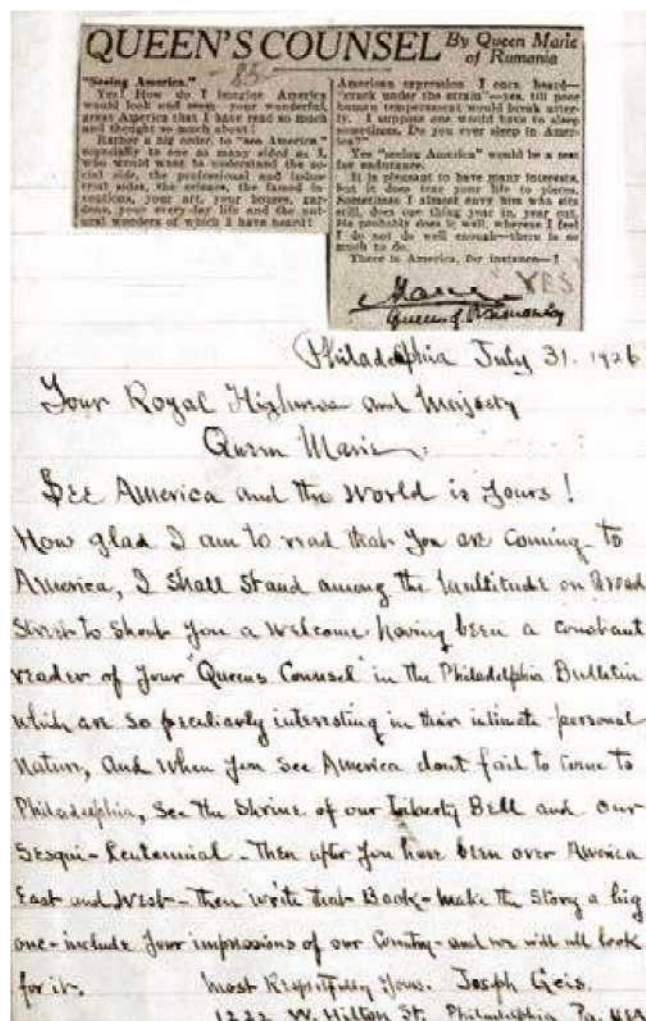 QUEEN'S COUNSEL
By Queen Marie
of Rumania
"Seeing America."
Yes! How do I imagine America
would look and seem your wonderful,
great America that I have read so much
and thought so much about!
Rather a big order, to "see America"
especially to one as many sided as I,
who would want to understand the so-
cial side, the professional and indus-
trial sides, the science, the famed in-
ventions, your art, your houses, gar-
dens, your every-day life and the nat-
ural wonders of which I have heard!
American expression I once heard—
"crack under the strain"—yes, till poor
human temperament would break utter-
ly. I suppose one would have to sleep
sometimes. Do you ever sleep in Amer-
ica?"
Yes "seeing America" would be a test
for endurance.
It is pleasant to have many interests,
but it does tear your life to pieces.
Sometimes I almost envy him who sits
still, does one thing year in, year out.
He probably does it well, whereas I feel
I do not do well enough—there is so
much to do.
There is America, for instance—!
YES
Marie
Queen of Rumania
Philadelphia July 31. 1926
Your Royal Highness and Majesty
Queen Marie.
SEE America and the World is yours!
How glad I am to read that you are coming to
America, I shall stand among the multitude on Broad
Street to shout you a welcome having been a constant
reader of your "Queens Counsel" in the Philadelphia Bulletin
which are so peculiarly interesting in their intimate personal
nature, and when you see America dont fail to come to
Philadelphia, see the shrine of our Liberty Bell and our
Sesqui-Centennial. Then after you have been over America
East and West - then write that Book - make the story a big
one - include your impressions of our Country - and we will all look
for it.
Most Respectfully Yours. Joseph Geis.
1222 W. Hilton St. Philadelphia Pa. USA